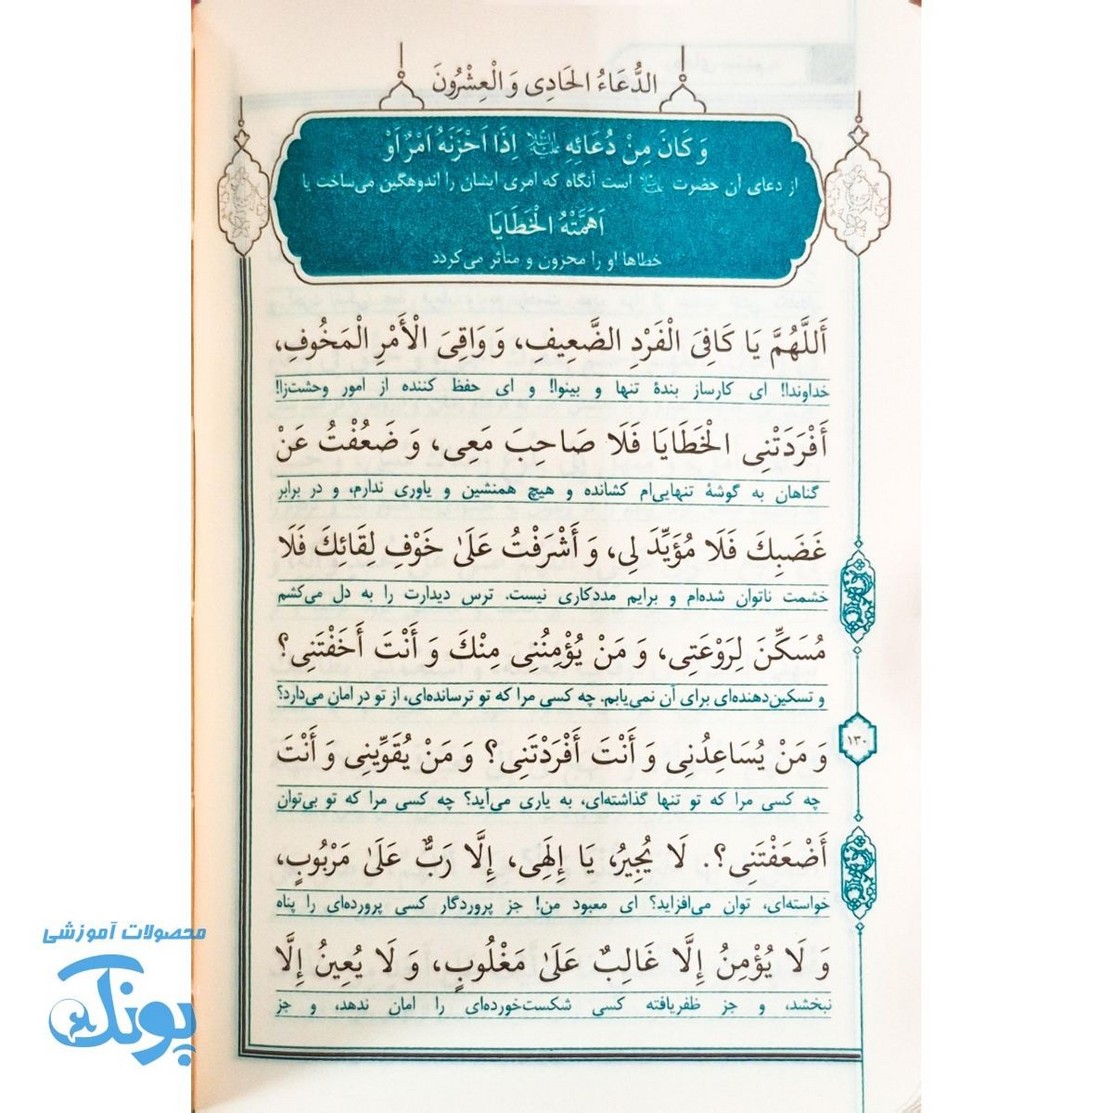 الدُّعَاءُ الحَادِی وَ الْعِشْرُونَ
وَ کَانَ مِنْ دُعَائِهِ علیه‌السلام اِذَا اَحْزَنَهُ اَمْرٌ اَوْ
از دعای آن حضرت علیه‌السلام است آنگاه که امری ایشان را اندوهگین می‌ساخت یا
اَهَمَّتْهُ الْخَطَایَا
خطاها او را محزون و متأثر می‌کردد
أَللَّهُمَّ یَا کَافِیَ الْفَرْدِ الضَّعِیفِ، وَ وَاقِیَ الْأَمْرِ الْمَخُوفِ،
خداوندا! ای کارساز بندهٔ تنها و بینوا! و ای حفظ کننده از امور وحشت‌زا!
أَفْرَدَتْنِی الْخَطَایَا فَلَا صَاحِبَ مَعِی، وَ ضَعُفْتُ عَنْ
گناهان به گوشهٔ تنهایی‌ام کشانده و هیچ همنشین و یاوری ندارم، و در برابر
غَضَبِكَ فَلَا مُؤَیِّدَ لِی، وَ أَشْرَفْتُ عَلَیٰ خَوْفِ لِقَائِكَ فَلَا
خشمت ناتوان شده‌ام و برایم مددکاری نیست. ترس دیدارت را به دل می‌کشم
مُسَکِّنَ لِرَوْعَتِی، وَ مَنْ یُؤْمِنُنِی مِنْكَ وَ أَنْتَ أَخَفْتَنِی؟
و تسکین‌دهنده‌ای برای آن نمی‌یابم. چه کسی مرا که تو ترسانده‌ای، از تو در امان می‌دارد؟
وَ مَنْ یُسَاعِدُنِی وَ أَنْتَ أَفْرَدْتَنِی؟ وَ مَنْ یُقَوِّینِی وَ أَنْتَ
۱۳۰
چه کسی مرا که تو تنها گذاشته‌ای، به یاری می‌آید؟ چه کسی مرا که تو بی‌توان
أَضْعَفْتَنِی؟. لَا یُجِیرُ، یَا إِلَهِی، إِلَّا رَبٌّ عَلَیٰ مَرْبُوبٍ،
خواسته‌ای، توان می‌افزاید؟ ای معبود من! جز پروردگار کسی پرورده‌ای را پناه
وَ لَا یُؤْمِنُ إِلَّا غَالِبٌ عَلَیٰ مَغْلُوبٍ، وَ لَا یُعِینُ إِلَّا
نبخشد، و جز ظفریافته کسی شکست‌خورده‌ای را امان ندهد، و جز
محصولات آموزشی
پونک